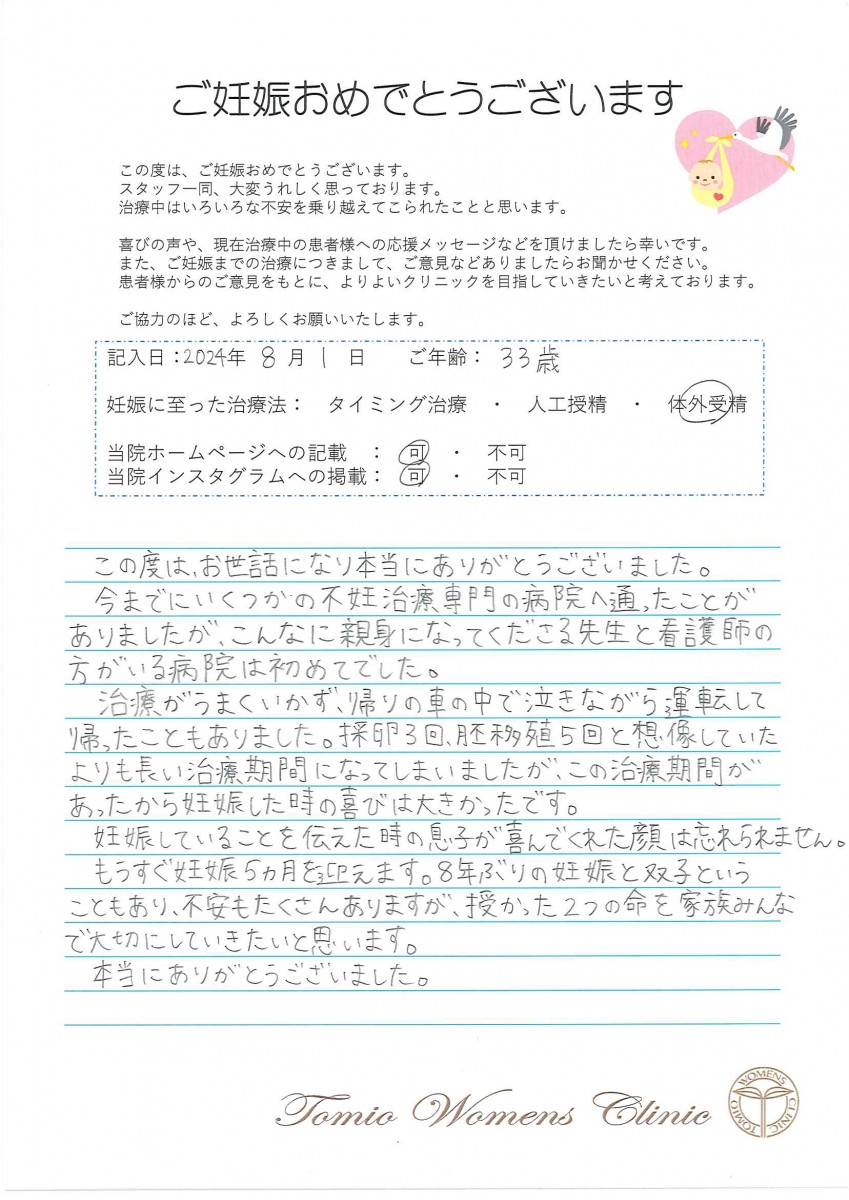 ご妊娠おめでとうございます
この度は、ご妊娠おめでとうございます。
スタッフ一同、大変うれしく思っております。
治療中はいろいろな不安を乗り越えてこられたことと思います。
喜びの声や、現在治療中の患者様への応援メッセージなどを頂けましたら幸いです。
また、ご妊娠までの治療につきまして、ご意見などありましたらお聞かせください。
患者様からのご意見をもとに、よりよいクリニックを目指していきたいと考えております。
ご協力のほど、よろしくお願いいたします。
記入日：2024年 8 月 1 日 ご年齢： 33歳
妊娠に至った治療法： タイミング治療 ・ 人工授精 ・ 体外受精
当院ホームページへの記載 ： 可 ・ 不可
当院インスタグラムへの掲載： 可 ・ 不可
この度は、お世話になり本当にありがとうございました。
今までにいくつかの不妊治療専門の病院へ通ったことが
ありましたが、こんなに親身になってくださる先生と看護師の
方がいる病院は初めてでした。
治療がうまくいかず、帰りの車の中で泣きながら運転して
帰ったこともありました。採卵3回、胚移殖5回と想像していた
よりも長い治療期間になってしまいましたが、この治療期間が
あったから妊娠した時の喜びは大きかったです。
妊娠していることを伝えた時の息子が喜んでくれた顔は忘れられません。
もうすぐ妊娠5ヵ月を迎えます。8年ぶりの妊娠と双子という
こともあり、不安もたくさんありますが、授かった2つの命を家族みんな
で大切にしていきたいと思います。
本当にありがとうございました。
Tomio Womens Clinic
WOMENS CLINIC TOMIO